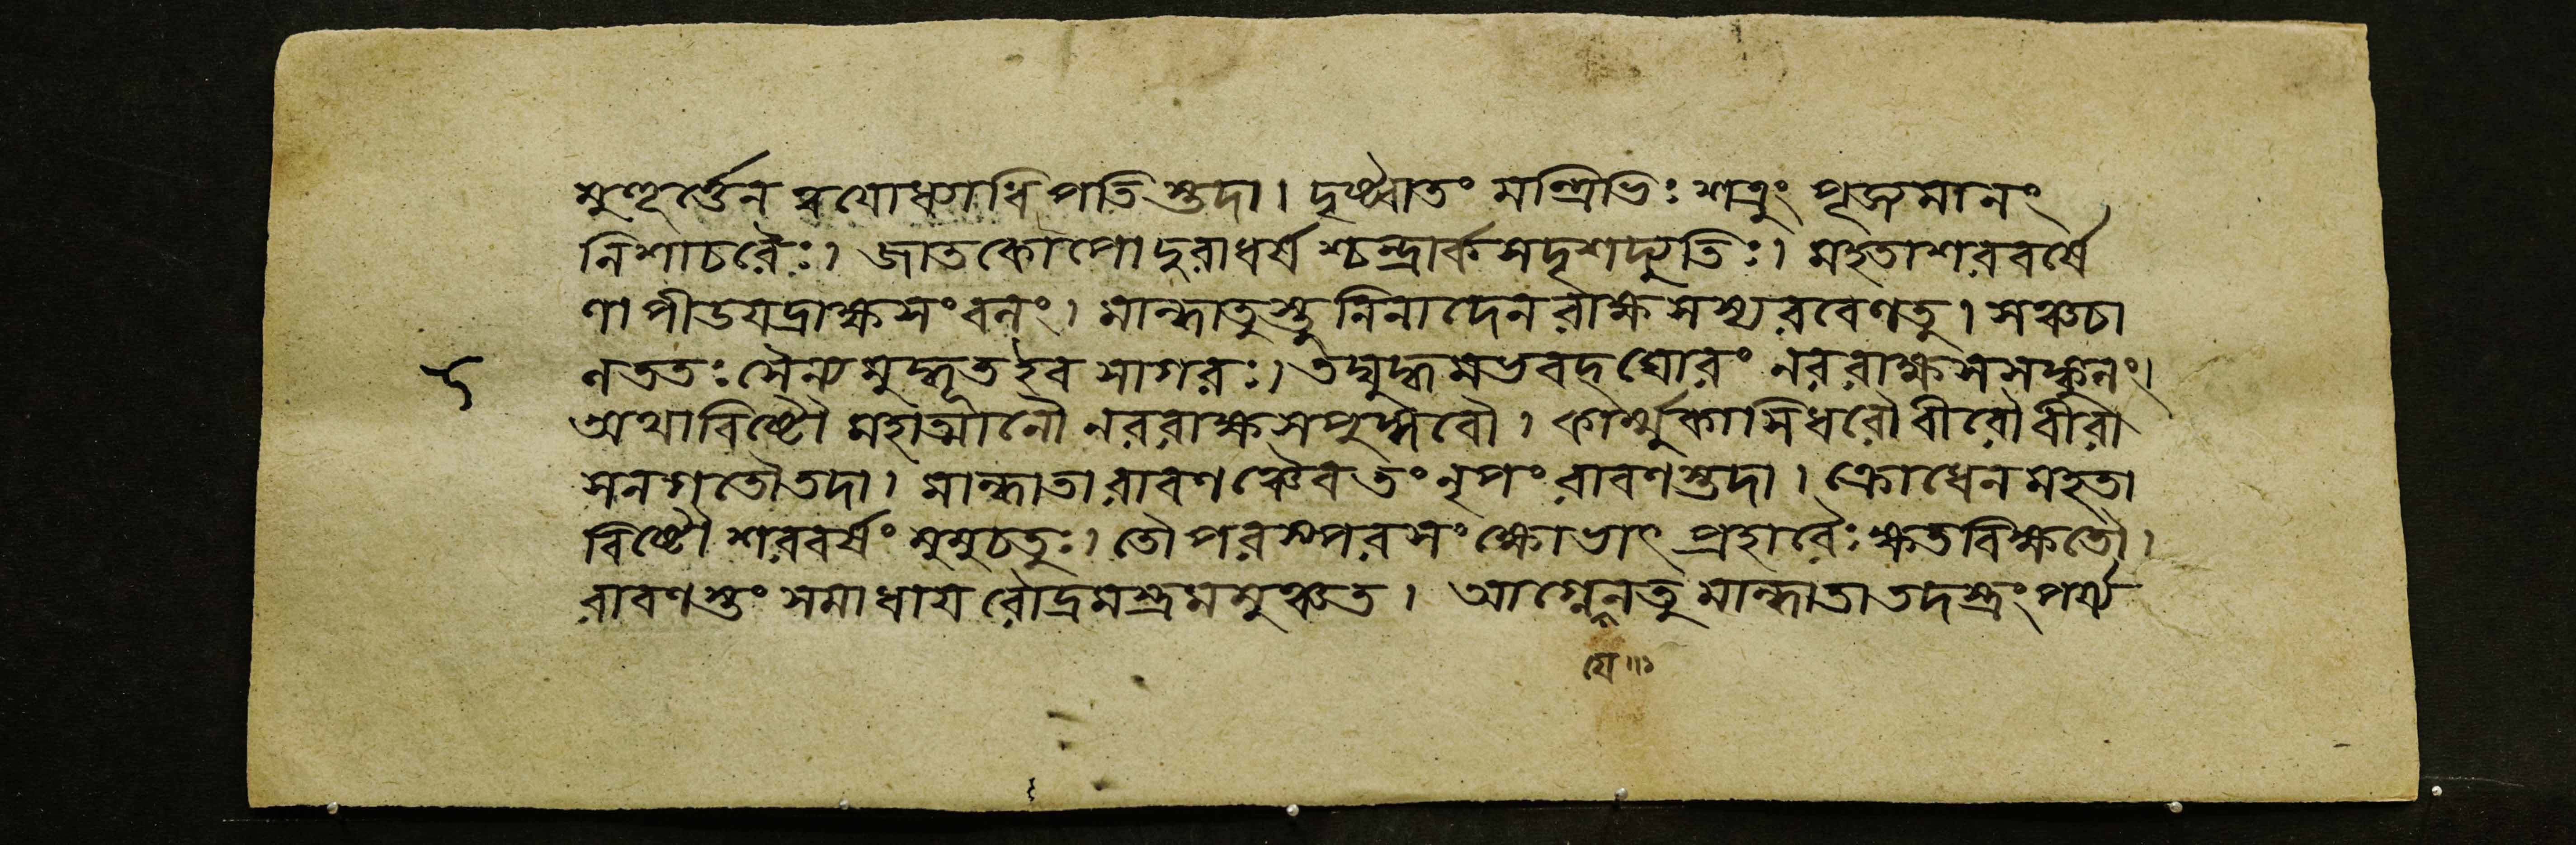 মুহূর্ত্তেন ত্বযোধ্যাধিপতিস্তদা। দৃষ্ট্বাতং মন্ত্রিভিঃ শত্রুং পূজ্যমানং
নিশাচরৈঃ। জাতকোপো দুরাধর্ষশ্চন্দ্রার্কসদৃশদ্যুতিঃ। মহতাশরবর্ষে
ণাপীডযদ্রাক্ষসংবলং। মান্ধাতুস্তু নিনাদেন রাক্ষসস্য রবেণতু। সঞ্চচা
লততঃ সৈন্যমুদ্ধূতইব সাগরঃ। তদ্যুদ্ধমভবদ্ঘোরং নররাক্ষসসঙ্কুলং।
অথাবিষ্টৌ মহাত্মানৌ নররাক্ষসপুঙ্গবৌ। কার্ম্মুকাসিধরৌ বীরৌ বীরা
সনগতৌতদা। মান্ধাতা রাবণঞ্চৈব তং নৃপং রাবণস্তদা। ক্রোধেন মহতা
বিষ্টৌ শরবর্ষং মুমুচতুঃ। তৌ পরস্পরসংক্ষোভাৎ প্রহারৈঃ ক্ষতবিক্ষতৌ।
রাবণস্তং সমাধায রৌদ্রমস্ত্রমমুঞ্চত। আগ্নেনতু মান্ধাতা তদস্ত্রং পর্য্য
যে॥